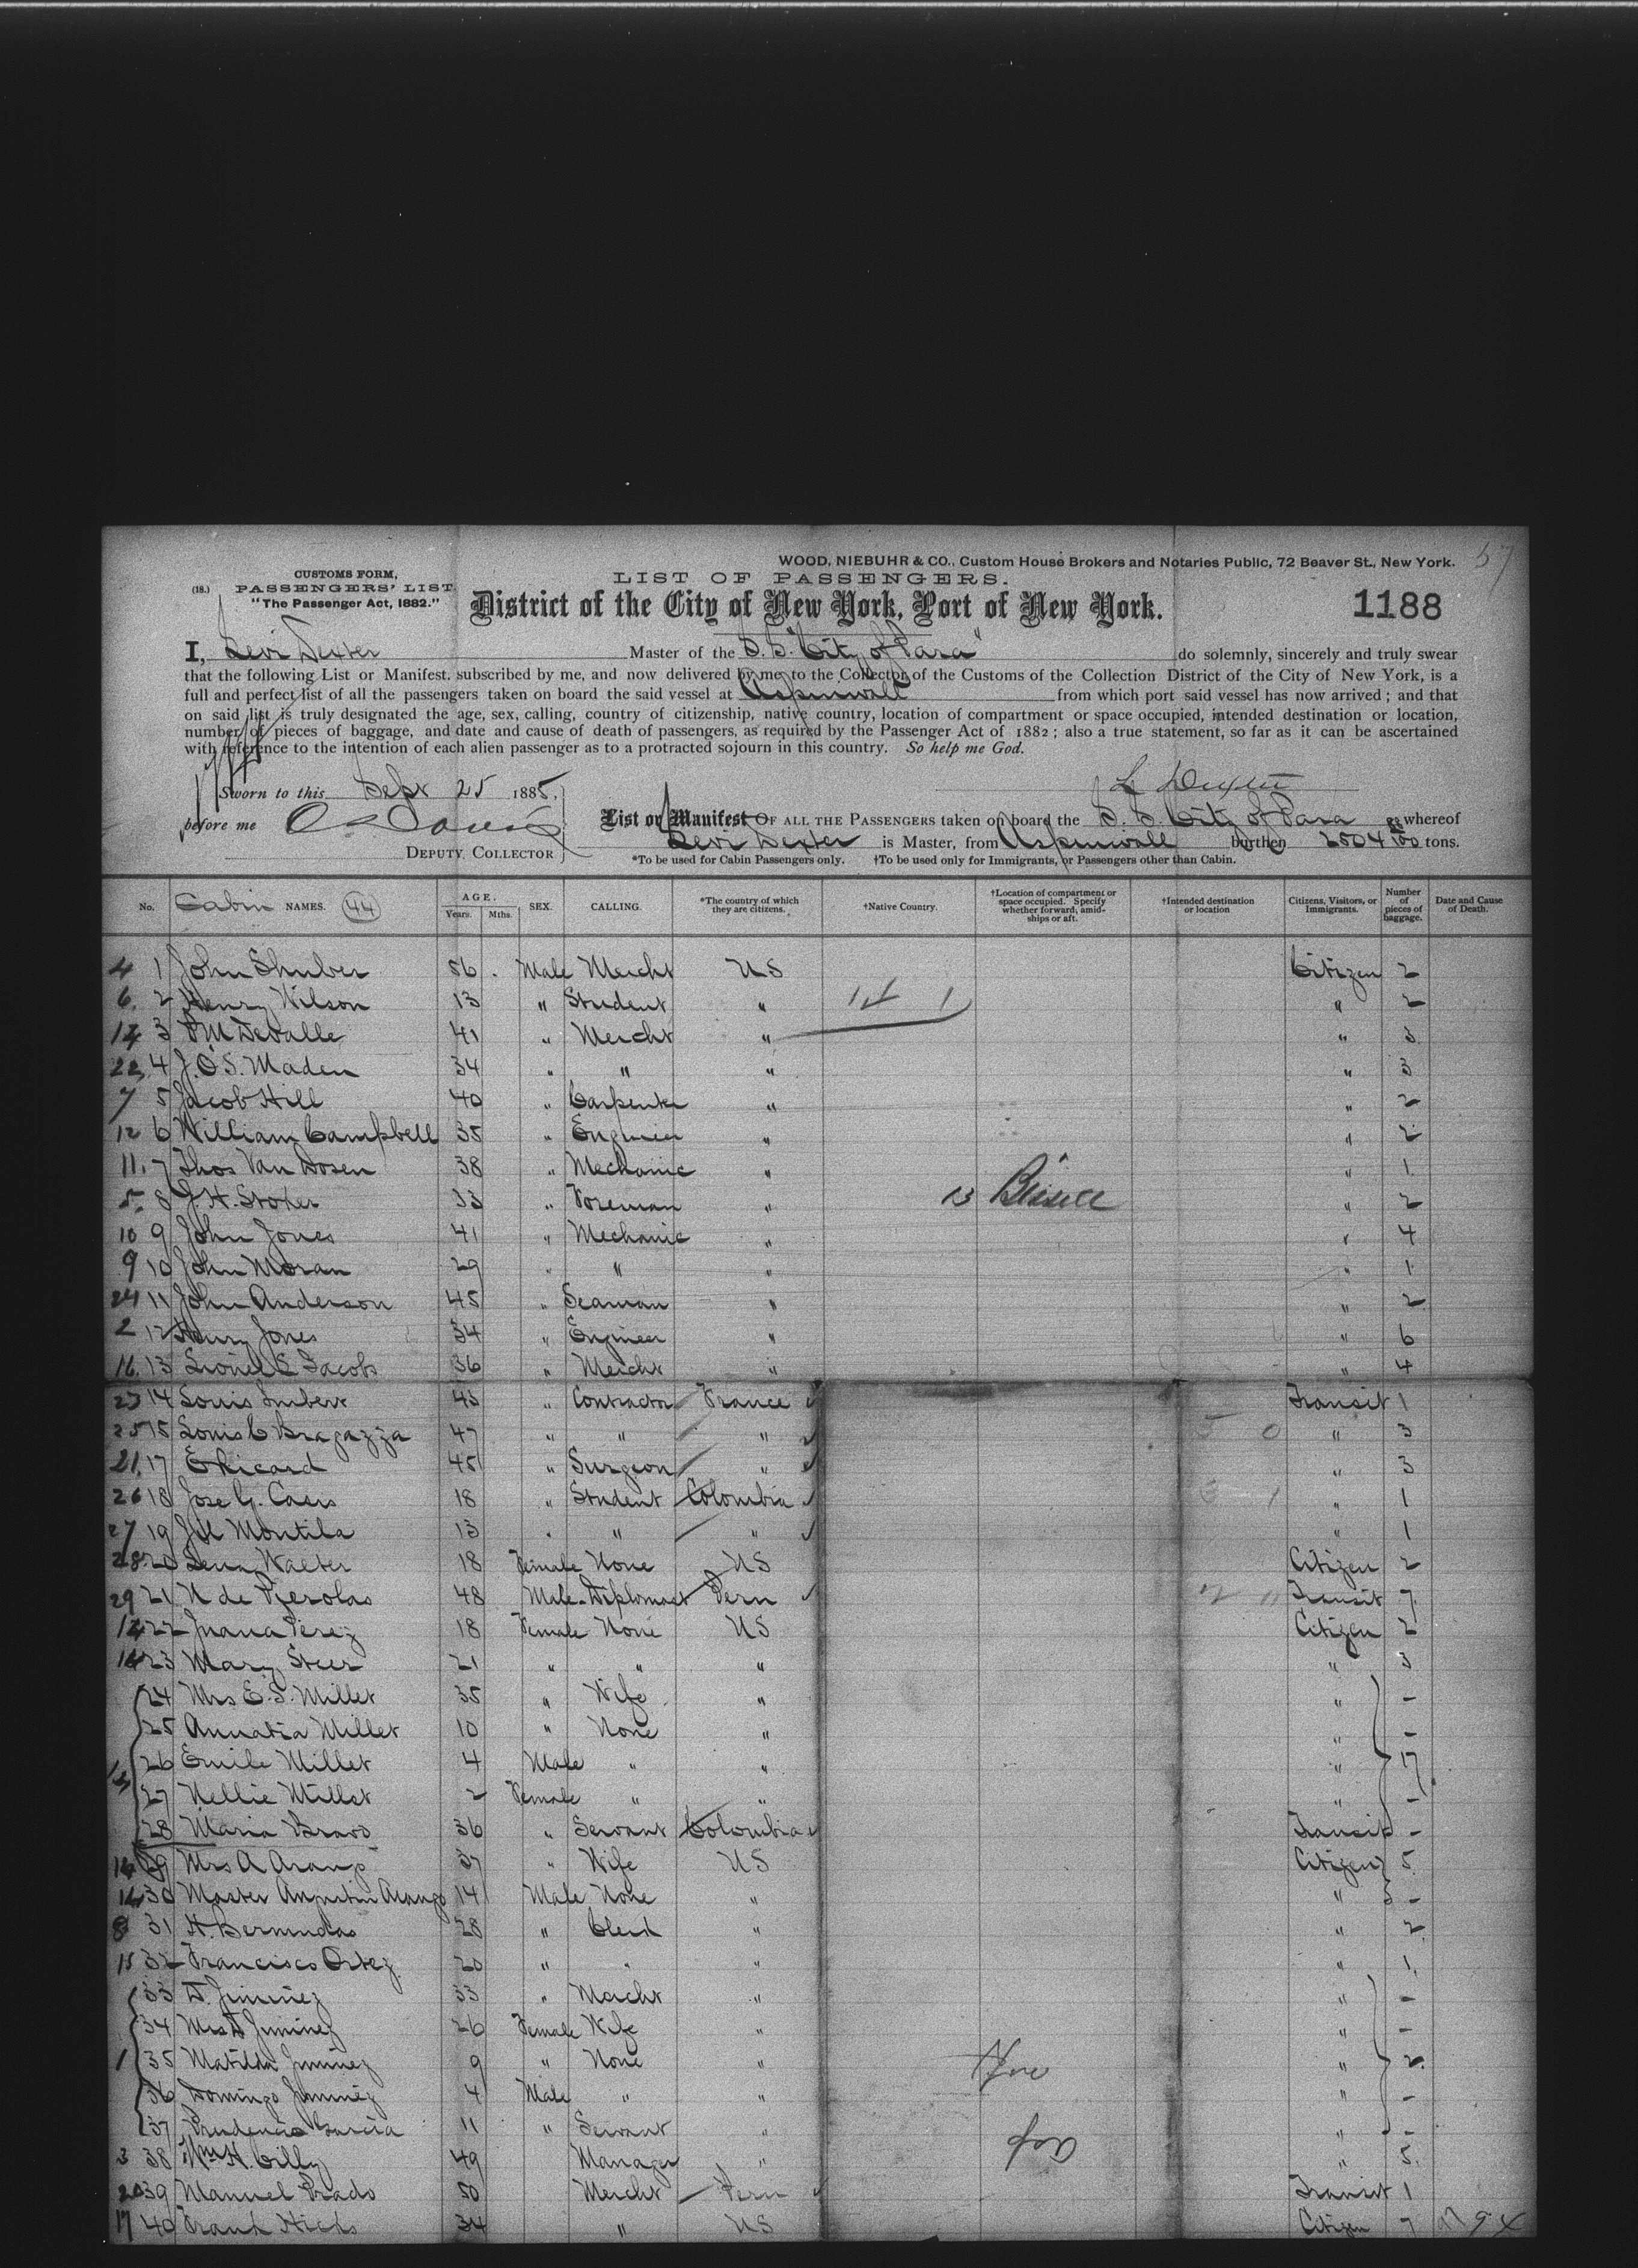 WOOD, NIEBUHR & CO., Custom House Brokers and Notaries Public, 72 Beaver St., New York. 57
(18.) CUSTOMS FORM,
PASSENGERS' LIST
"The Passenger Act, 1882."
LIST OF PASSENGERS.
District of the City of New York, Port of New York.
1188
I, Levi Dexter Master of the S.S. "City of Para" do solemnly, sincerely and truly swear
that the following List or Manifest, subscribed by me, and now delivered by me to the Collector of the Customs of the Collection District of the City of New York, is a
full and perfect list of all the passengers taken on board the said vessel at Aspinwall from which port said vessel has now arrived; and that
on said list is truly designated the age, sex, calling, country of citizenship, native country, location of compartment or space occupied, intended destination or location,
number of pieces of baggage, and date and cause of death of passengers, as required by the Passenger Act of 1882; also a true statement, so far as it can be ascertained
with reference to the intention of each alien passenger as to a protracted sojourn in this country. So help me God.
Sworn to this Sept 25 1885,
L Dexter
before me
DEPUTY COLLECTOR
List or Manifest OF ALL THE PASSENGERS taken on board the S.S. City of Para whereof
Levi Dexter is Master, from Aspinwall burthen 2504 tons.
*To be used for Cabin Passengers only. †To be used only for Immigrants, or Passengers other than Cabin.
No. Cabin NAMES. 44 AGE. Years. Mths. SEX. CALLING. *The country of which they are citizens. †Native Country. †Location of compartment or space occupied. Specify whether forward, amidships or aft. †Intended destination or location Citizens, Visitors, or Immigrants. Number of pieces of baggage. Date and Cause of Death.
4 1 John Shuber 56 Male Mercht US Citizen 2
6 2 Henry Wilson 13 " Student " " 2
3 P M DeValle 41 " Mercht " " 3
22 4 J. O'S. Maden 34 " " " " 3
7 5 Jacob Hill 40 " Carpenter " " 2
12 6 William Campbell 35 " Engineer " " 2
11 7 Thos Van Dosen 38 " Mechanic " " 1
5 8 J. H. Stoker 33 " Foreman " " 2
10 9 John Jones 41 " Mechanic " " 4
9 10 John Moran 29 " " " " 1
24 11 John Anderson 45 " Seaman " " 2
2 12 Henry Jones 34 " Engineer " " 6
16 13 Lionel E Jacobs 36 " Mercht " " 4
23 14 Louis Imbert 43 " Contractor France Transit 1
25 15 Louis C Bragazza 47 " " " " 3
21 17 E Ricard 45 " Surgeon " " 3
26 18 Jose G. Cases 18 " Student Colombia " 1
27 19 Montila 13 " " " " 1
28 20 Lena Walter 18 Female None US Citizen 2
29 21 N de Pierolas 48 Male Diplomat Peru Transit 7
22 Juana Perez 18 Female None US Citizen 2
23 Mary Steer 21 " " " " 3
24 Mrs E. S. Millet 35 " Wife " " -
25 Annatia Millet 10 " None " " -
26 Emile Millet 4 Male " " " 17
27 Nellie Millet 2 Female " " " -
28 Maria Bravo 36 " Servant Colombia Transit -
29 Mrs A Arango 37 " Wife US Citizen 5
30 Master Augustin Arango 14 Male None " " -
8 31 H. Bermudas 28 " Clerk " " 2
15 32 Francisco Ortez 20 " " " " 1
33 D. Jiminez 33 " Mercht " " -
34 Mrs D Jiminez 26 Female Wife " " -
1 35 Matilda Jiminez 9 " None " " 2
36 Domingo Jiminez 4 Male " " " -
37 Prudencio Garcia 11 " Servant " " -
3 38 Wm H. Cilly 49 Manager " " 5
20 39 Manuel Prado 50 Mercht Peru Transit 1
17 40 Frank Hicks 34 " US Citizen 7